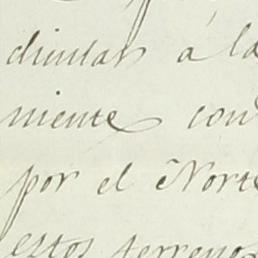 á la
niente con
por el Norte
estos terreno